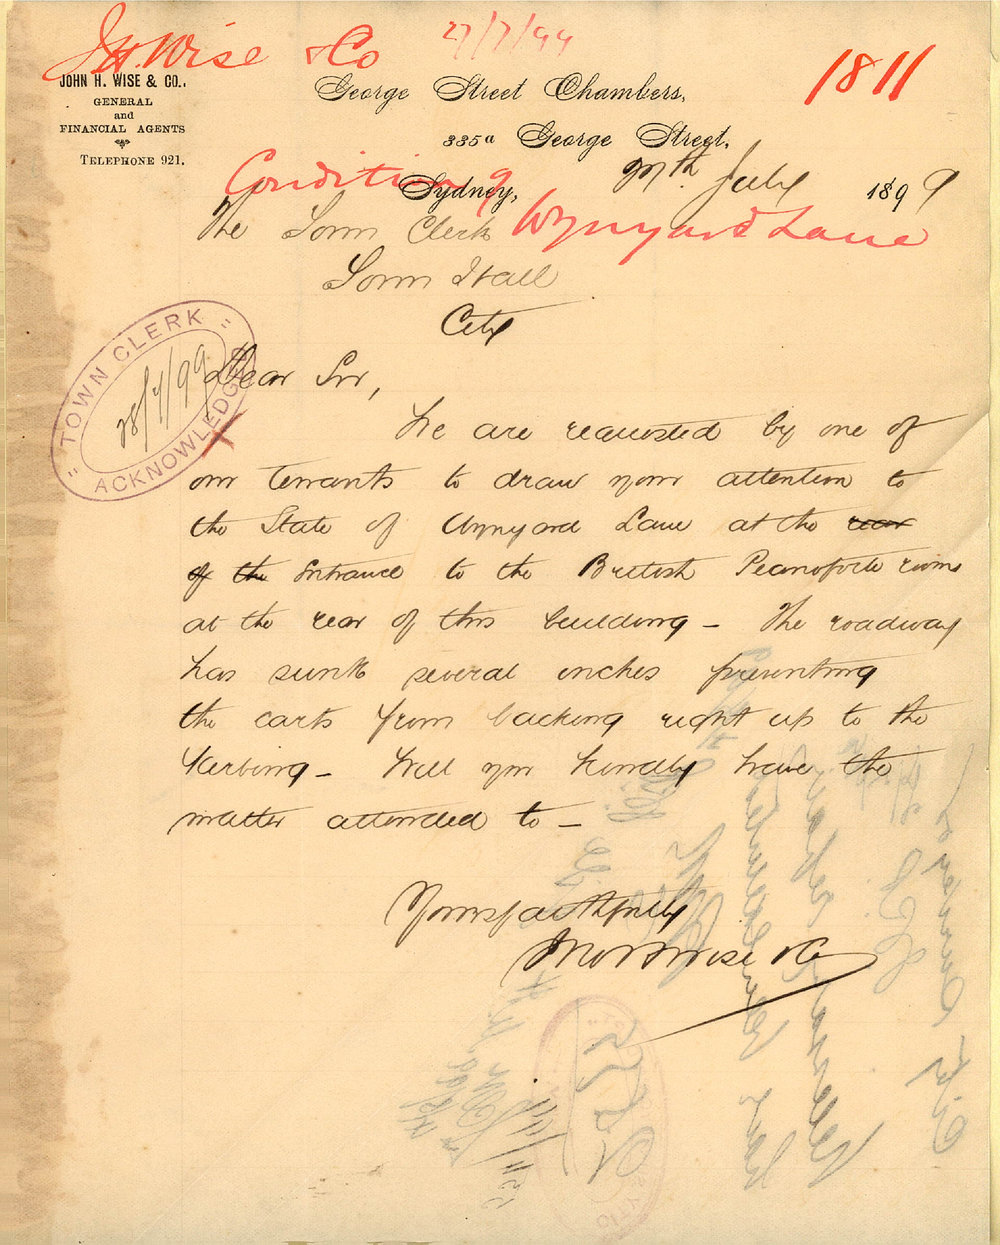 J H. Wise & Co
27/7/99
1811
JOHN H. WISE & CO.,
GENERAL
and
FINANCIAL AGENTS
TELEPHONE 921.
George Street Chambers,
335a George Street,
Sydney, 27th July 1899
Condition of
Wynyard Lane
The Town Clerk
Town Hall
City
TOWN CLERK
28/7/99
ACKNOWLEDGED
Dear Sir,
We are requested by one of
our tenants to draw your attention to
the State of Wynyard Lane at the rear
of the Entrance to the British Pianoforte rooms
at the rear of this building – The roadway
has sunk several inches preventing
the carts from backing right up to the
Kerbing – Will you kindly have the
matter attended to –
Yours faithfully
Jno H Wise & Co